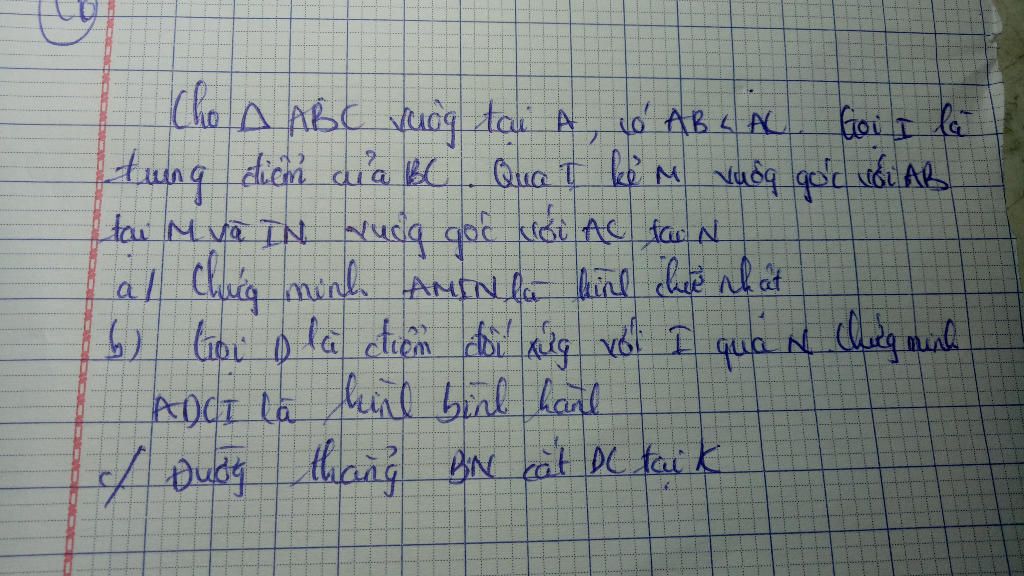 Cho Δ ABC vuông tại A, có AB < AC. Gọi I là
trung điểm của BC. Qua I kẻ M vuông góc với AB
tại M và IN vuông góc với AC tại N
a/ Chứng minh AMIN là hình chữ nhật
b) Gọi D là điểm đối xứng với I qua N. Chứng minh
ADCI là hình bình hành
c/ Đường thẳng BN cắt DC tại K